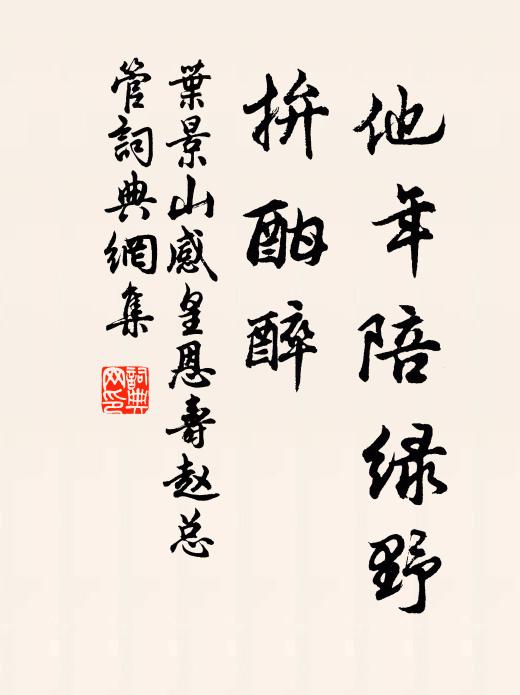 他年陪绿野
拚酣醉
葉景山感皇恩壽赵总
管詞典網集
詞典网印